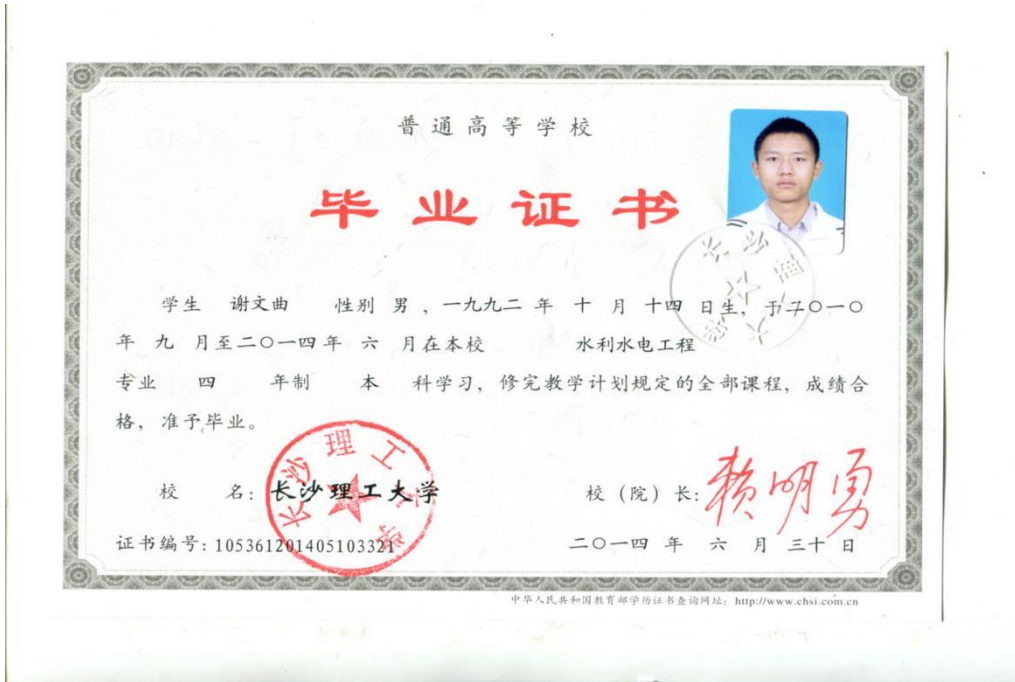 普通高等学校
毕业证书
学生 谢文曲 性别 男，一九九二 年 十 月 十四 日生，于二〇一〇
年 九 月至二〇一四年 六 月在本校 水利水电工程
专业 四 年制 本 科学习，修完教学计划规定的全部课程，成绩合
格，准予毕业。
校 名：长沙理工大学 校（院）长：赖明勇
长沙理工大学
证书编号：105361201405103321 二〇一四 年 六 月 三十 日
中华人民共和国教育部学历证书查询网址：http://www.chsi.com.cn